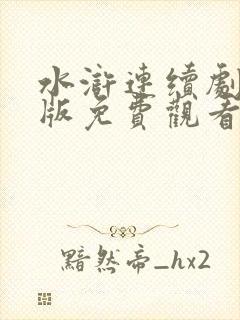 水滸連續劇
版免費觀看
黯然帝_hx2